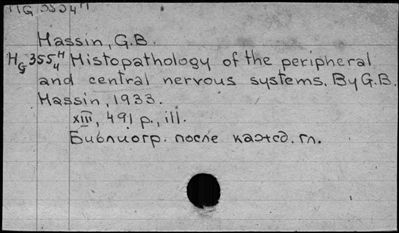 Hassin, G.B.
HG 355 H/4 Histopathology of the peripheral
and central nervous systems. By G.B.
Hassin, 1933.
XIII, 491 p., ill.
Библиогр. после кажд. гл.